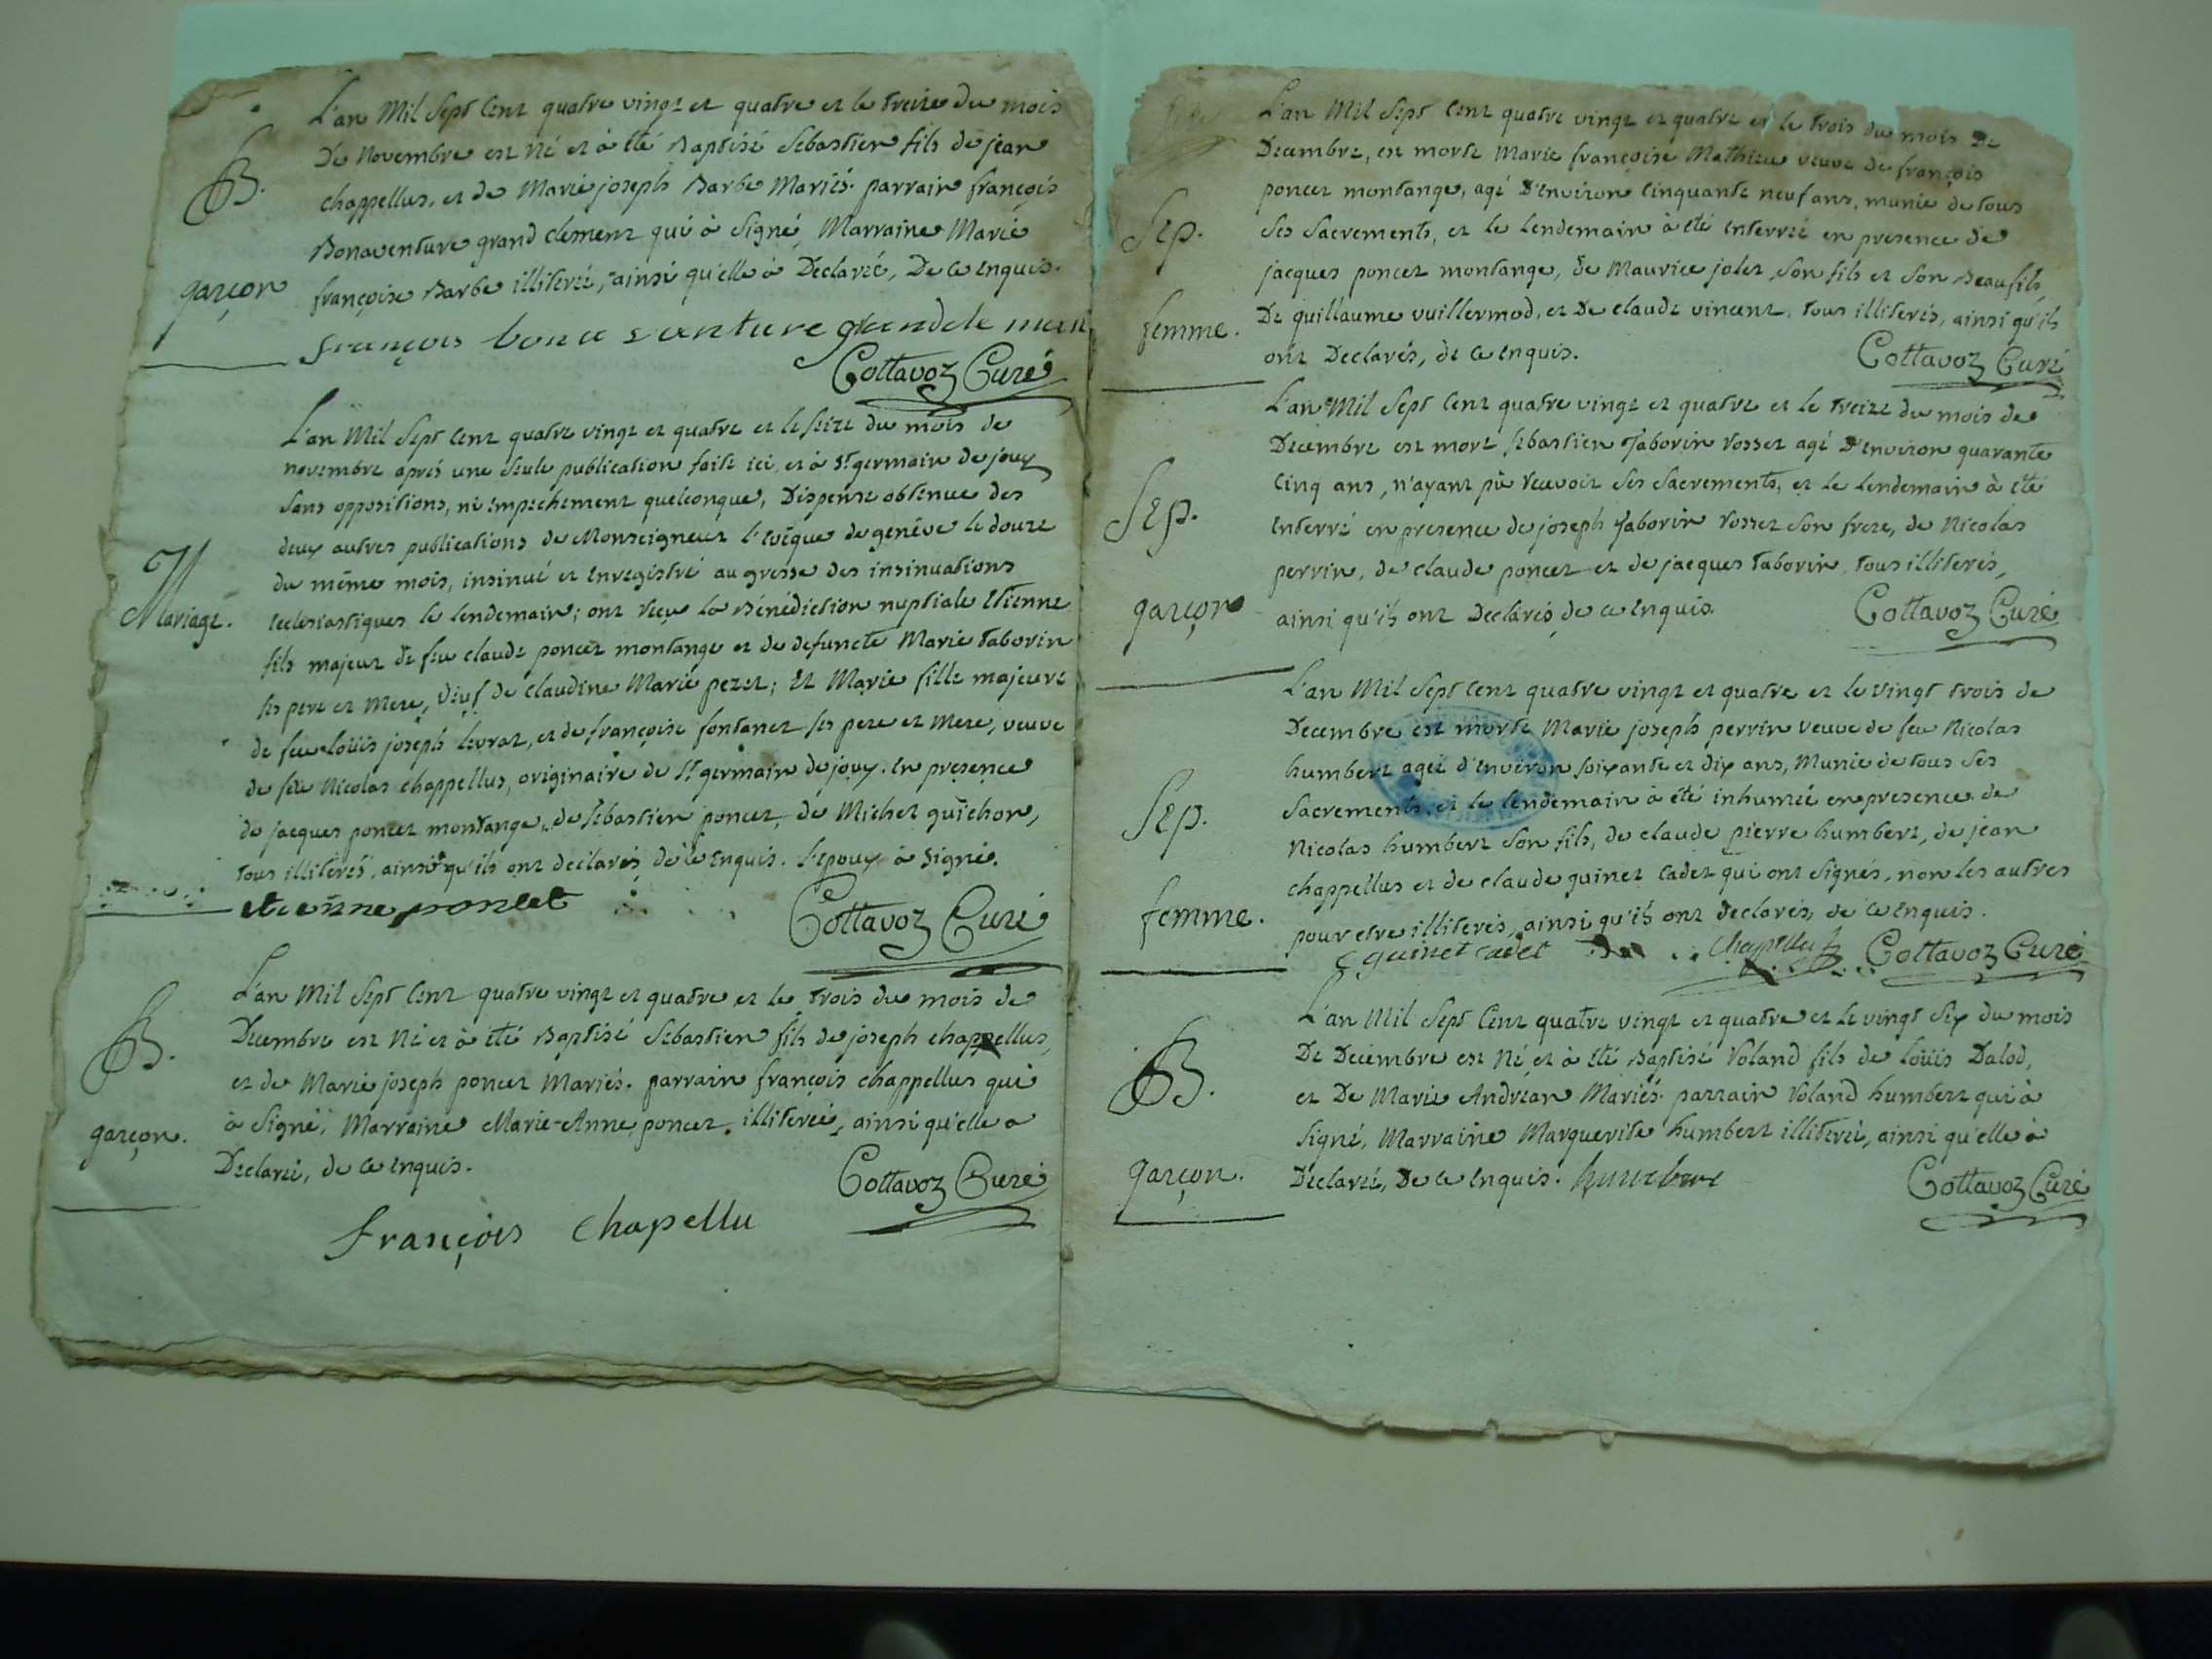 L'an Mil Sept Cent quatre vingt et quatre et le treize du mois
De Novembre est Né et à été Baptisé Sebastien fils de jean
chappellus, et de Marie joseph Barbe Mariés. parrain françois
Bonaventure grand clement qui à Signé, Marraine Marie
françoise Barbe illiterée, ainsi qu'elle à Declarée, De ce enquis.
B.
garçon
françois bona vanture grandcle man
Cottavoz Curé
L'an Mil Sept Cent quatre vingt et quatre et le seize du mois de
novembre aprés une seule publication faite ici, et à St germain de joux
sans oppositions, ni empechement quelconque, Dispense obtenue des
deux autres publications de Monseigneur l'evêque de genêve le douze
du même mois, insinué et enregistré au greffe des insinuations
ecclesiastiques le lendemain; ont reçu la Bénédiction nuptiale Etienne
Mariage.
fils majeur de feu claude poncet montange et de defuncte Marie taborin
ses pere et mere, veuf de claudine Marie pezet; Et Marie fille majeure
de feu loüis joseph levrat, et de françoise fontanet ses pere et mere, veuve
de feu Nicolas chappellus, originaire de St germain de joux. en presence
de jacques poncet montange, de sebastien poncet, de Michel guichon,
tous illiterés, ainsi qu'ils ont declarés de ce enquis. l'epoux à signé.
etienne poncet
Cottavoz Curé
L'an Mil Sept Cent quatre vingt et quatre et le trois du mois de
Decembre est Né et à été Baptisé Sebastien fils de joseph chappellus,
et de Marie joseph poncet Mariés. parrain françois chappellus qui
à Signé, Marraine Marie-Anne poncet illiterée, ainsi qu'elle a
Declarée, de ce enquis.
B.
garçon.
Cottavoz Curé
françois chapellu
L'an Mil Sept Cent quatre vingt et quatre et le trois du mois De
Decembre, est morte Marie françoise Mathieu veuve de françois
poncet montange, agé D'environ Cinquante neuf ans, munie de tous
Ses Sacrements, et le lendemain à été enterrée en presence de
jacques poncet montange, de Maurice jolet son fils et son Beaufils,
De guillaume vuillermod, et De claude vincent, tous illiterés, ainsi qu'ils
ont Declarés, de ce enquis.
Sep.
femme.
Cottavoz Curé
L'an Mil Sept Cent quatre vingt et quatre et le treize du mois de
Decembre est mort sebastien Taborin rosset agé D'environ quarante
Cinq ans, n'ayant pû recevoir Ses Sacrements, et le lendemain à été
enterré en presence de joseph Taborin rosset Son frere, de Nicolas
perrin, de claude poncet et de jacques taborin, tous illiterés,
ainsi qu'ils ont Declarés de ce enquis.
Sep.
garçon
Cottavoz Curé
L'an Mil Sept Cent quatre vingt et quatre et le vingt trois de
Decembre est morte Marie joseph perrin veuve de feu Nicolas
humbert ageé d'environ soixante et dix ans, Munie de tous Ses
Sacrements, et le lendemain à été inhumée en presence de
Nicolas humbert son fils, de claude pierre humbert, de jean
chappellus et de claude guinet cadet qui ont signés, non les autres
pour etre illiterés, ainsi qu'ils ont declarés, de ce enquis.
Sep.
femme.
C guinet cadet
Chapellu
Cottavoz Curé
L'an Mil Sept Cent quatre vingt et quatre et le vingt six du mois
De Decembre est Né et à été Baptisé Roland fils de Loüis Dalod,
et De Marie Andréan Mariés. parrain Roland humbert qui à
Signé, Marraine Marguerite humbert illiterée, ainsi qu'elle à
Declarée, De ce enquis. humbert
B.
garçon.
Cottavoz Curé